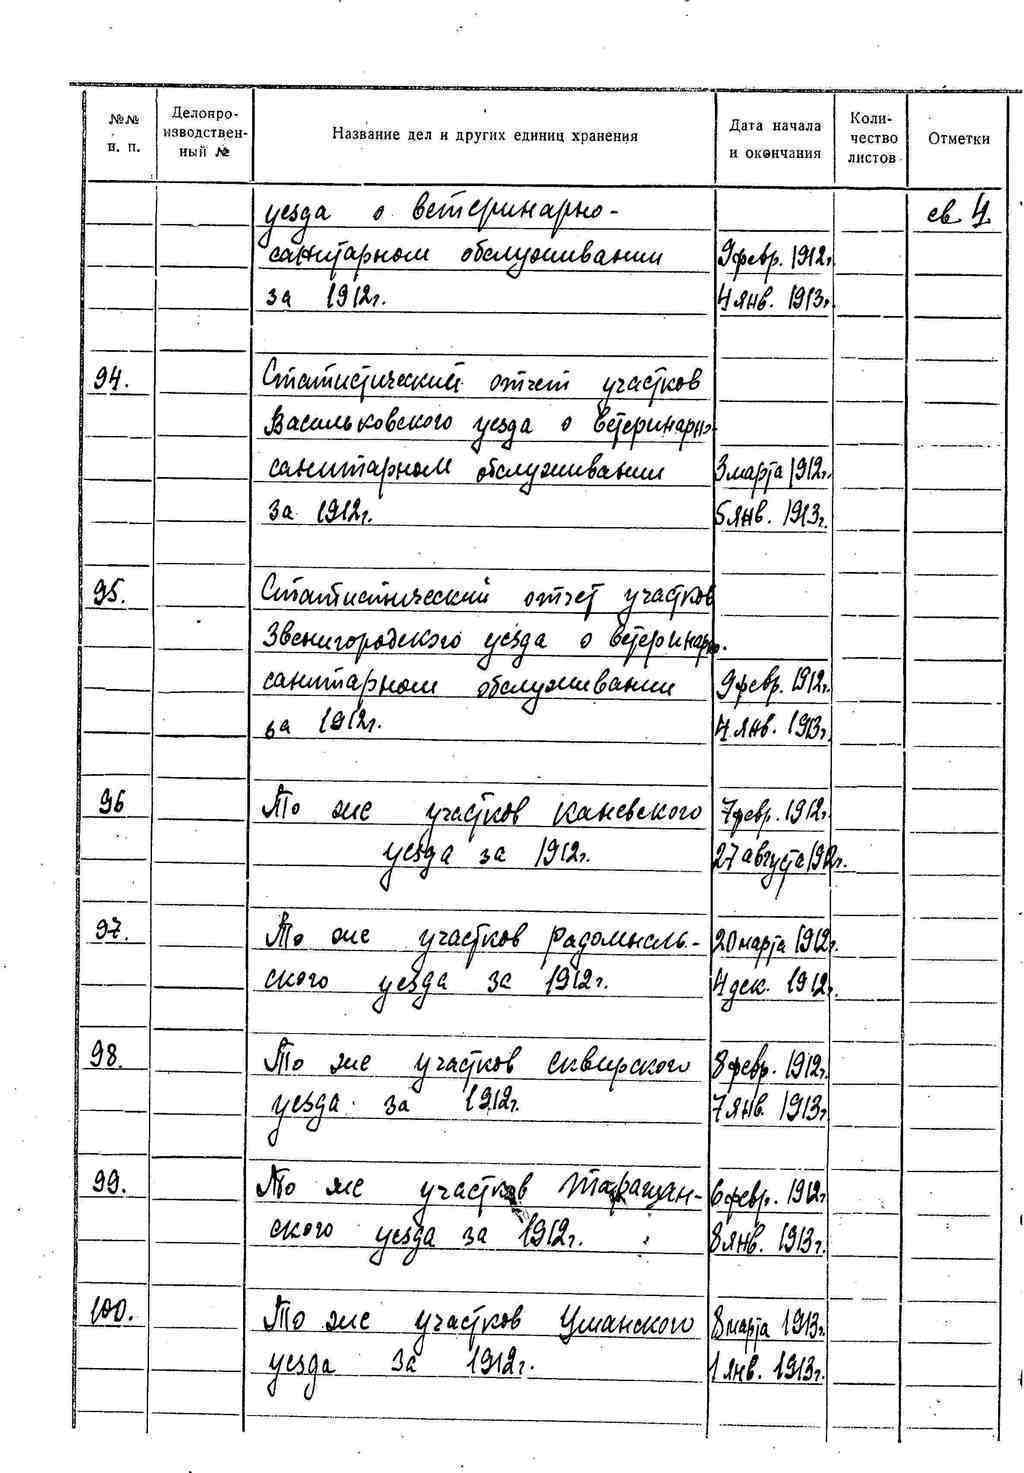 №№ п. п.
Делопроизводственный №
Название дел и других единиц хранения
Дата начала и окончания
Количество листов
Отметки
уезда о ветеринарно- св 4
санитарном обслуживании 9 февр. 1912г.
за 1912г. 4 янв. 1913г.
94. Статистический отчет участков
Васильковского уезда о ветеринарно
санитарном обслуживании 3 марта 1912г.
за 1912г. 5 янв. 1913г.
95. Статистический отчет участков
Звенигородского уезда о ветеринарно-
санитарном обслуживании 9 февр. 1912г.
за 1912г. 4 янв. 1913г.
96 То же участков Каневского 7 февр. 1912г.
уезда за 1912г. 27 августа 1912г.
97. То же участков Радомысль- 20 марта 1912г.
ского уезда за 1912г. 4 дек. 1912г.
98. То же участков Сквирского 8 февр. 1912г.
уезда за 1912г. 7 янв. 1913г.
99. То же участков Таращан- 6 февр. 1912г
ского уезда за 1912г. 8 янв. 1913г.
100. То же участков Уманского 8 марта 1913г.
уезда за 1912г. 1 янв. 1913г.